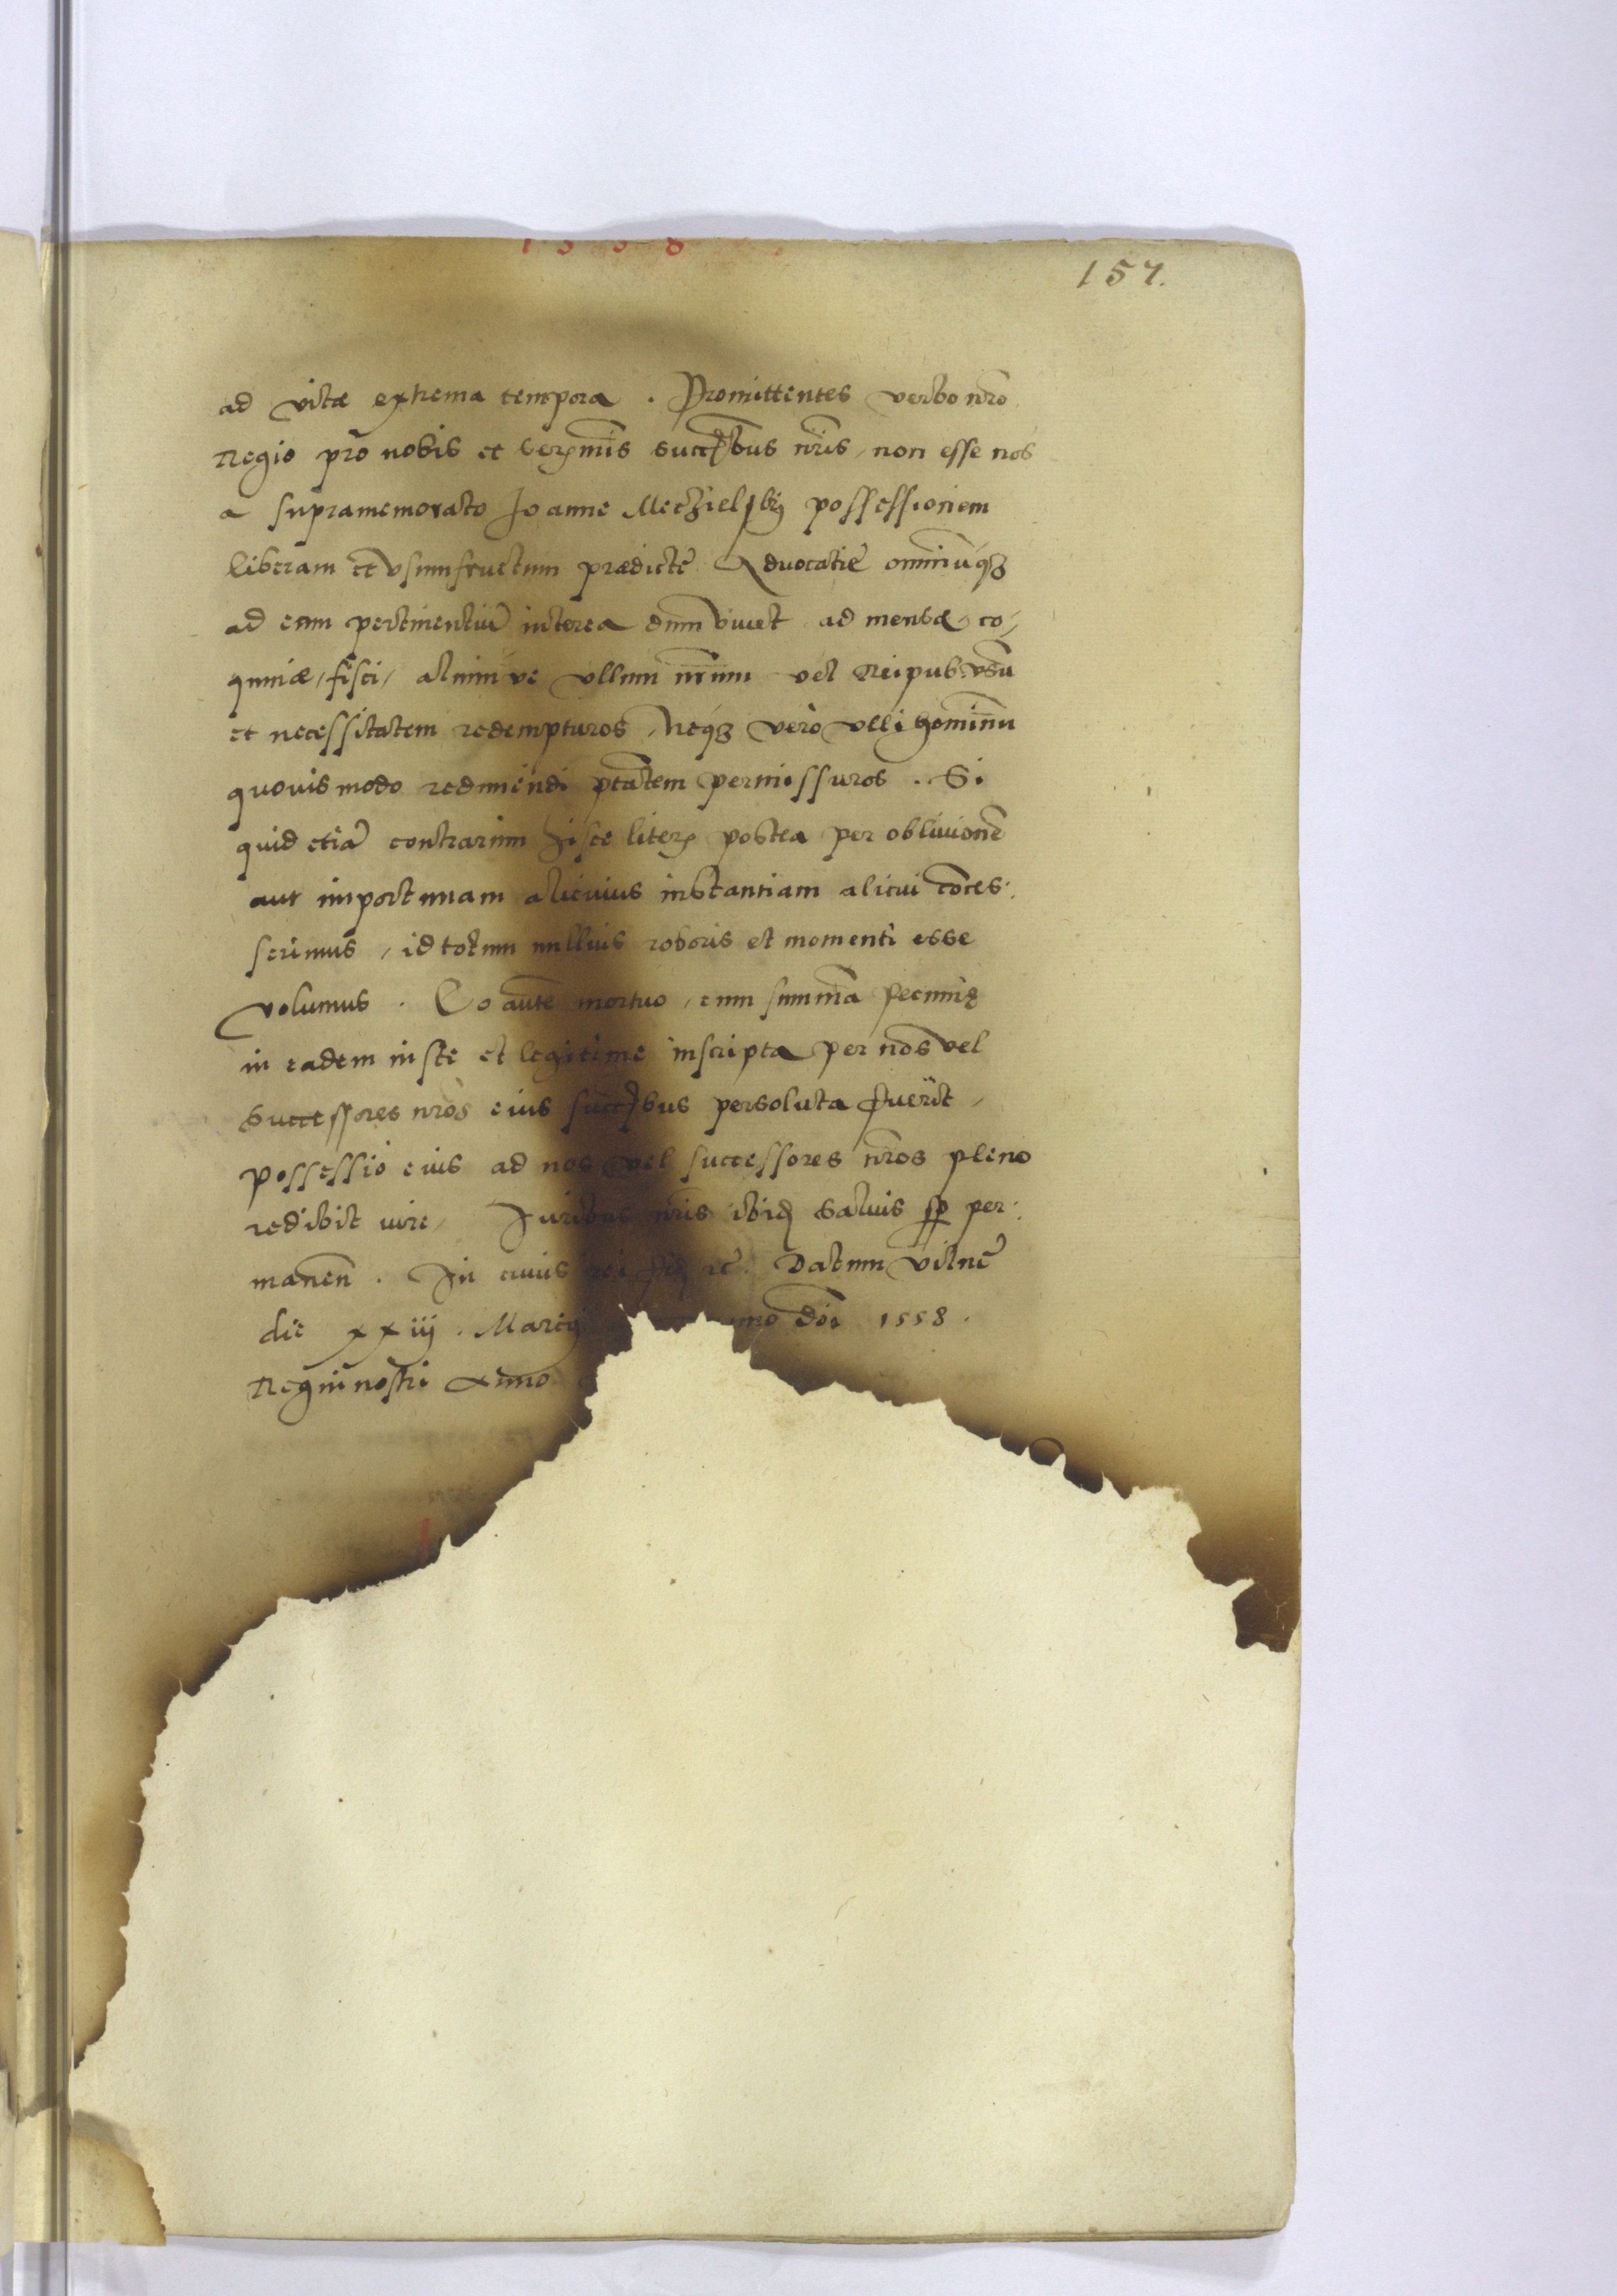 1558
157.
ad vitæ extrema tempora . Promittentes verbo nr̃o
Regio pro nobis et Ser̃mis succ̃bus nr̃is, non esse nos
a supramemorato Joanne possessionem
liberam et vsumfructum prædictę Aduocatię omniũq3
ad eam pertinentiũ interea dum viuet ad mensæ, co,
quiniæ, fisci, aliumve vllum nr̃um vel Reipub. vsũ
et necessitatem redempturos, Neq3 vero vlli hominũ
quouismodo redimendi ptãtem permissuros . Si
quid etiã contrarium hisce literis postea per obliuionẽ
aut importunam alicuius instantiam alicui cõces.
serimus, id totum nullius roboris et momenti esse
volumus . Eo autẽ mortuo, cum summa pecunię
in eadem iuste et legitime inscripta per nos vel
Successores nr̃os eius succ̃bus persoluta fuerit,
possessio eius ad nos vel successores nr̃os pleno
redibit iure, Juribus nr̃is ibid Saluis sp̃ per.
maneñ . In cuius rei fid etc̃. Datum Vilnę
die xxiij . Marcij dõi 1558 .
Regni nostri Anno